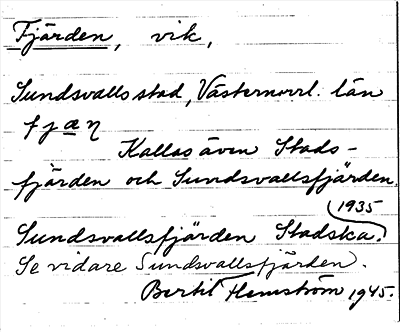 Fjärden, vik,
Sundsvalls stad, Västernorrl. län
fjaη
Kallas även Stads-
fjärden och Sundsvallsfjärden.
1935
Sundsvallsfjärden Stadska.
Se vidare Sundsvallsfjärden.
Bertil Hemström 1945.